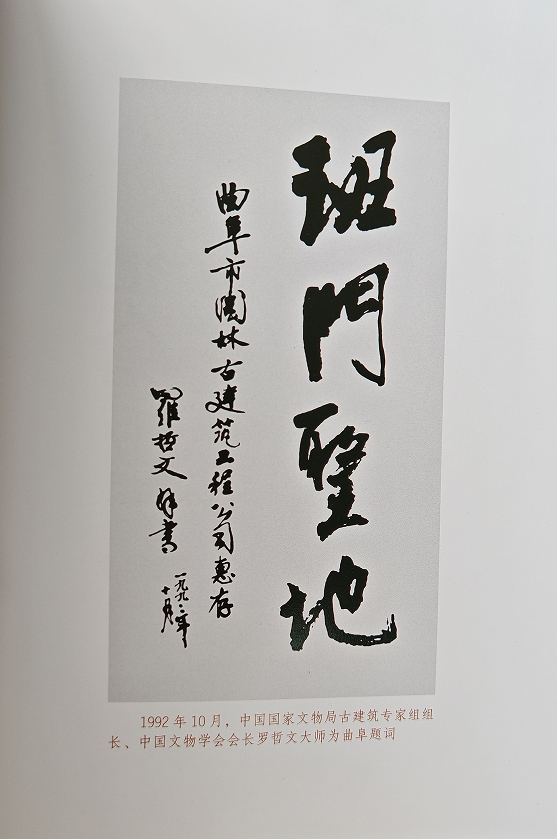 班門聖地
曲阜市園林古建筑工程公司惠存
羅哲文 書
一九九二年
十月
1992年10月，中国国家文物局古建筑专家组组
长、中国文物学会会长罗哲文大师为曲阜题词